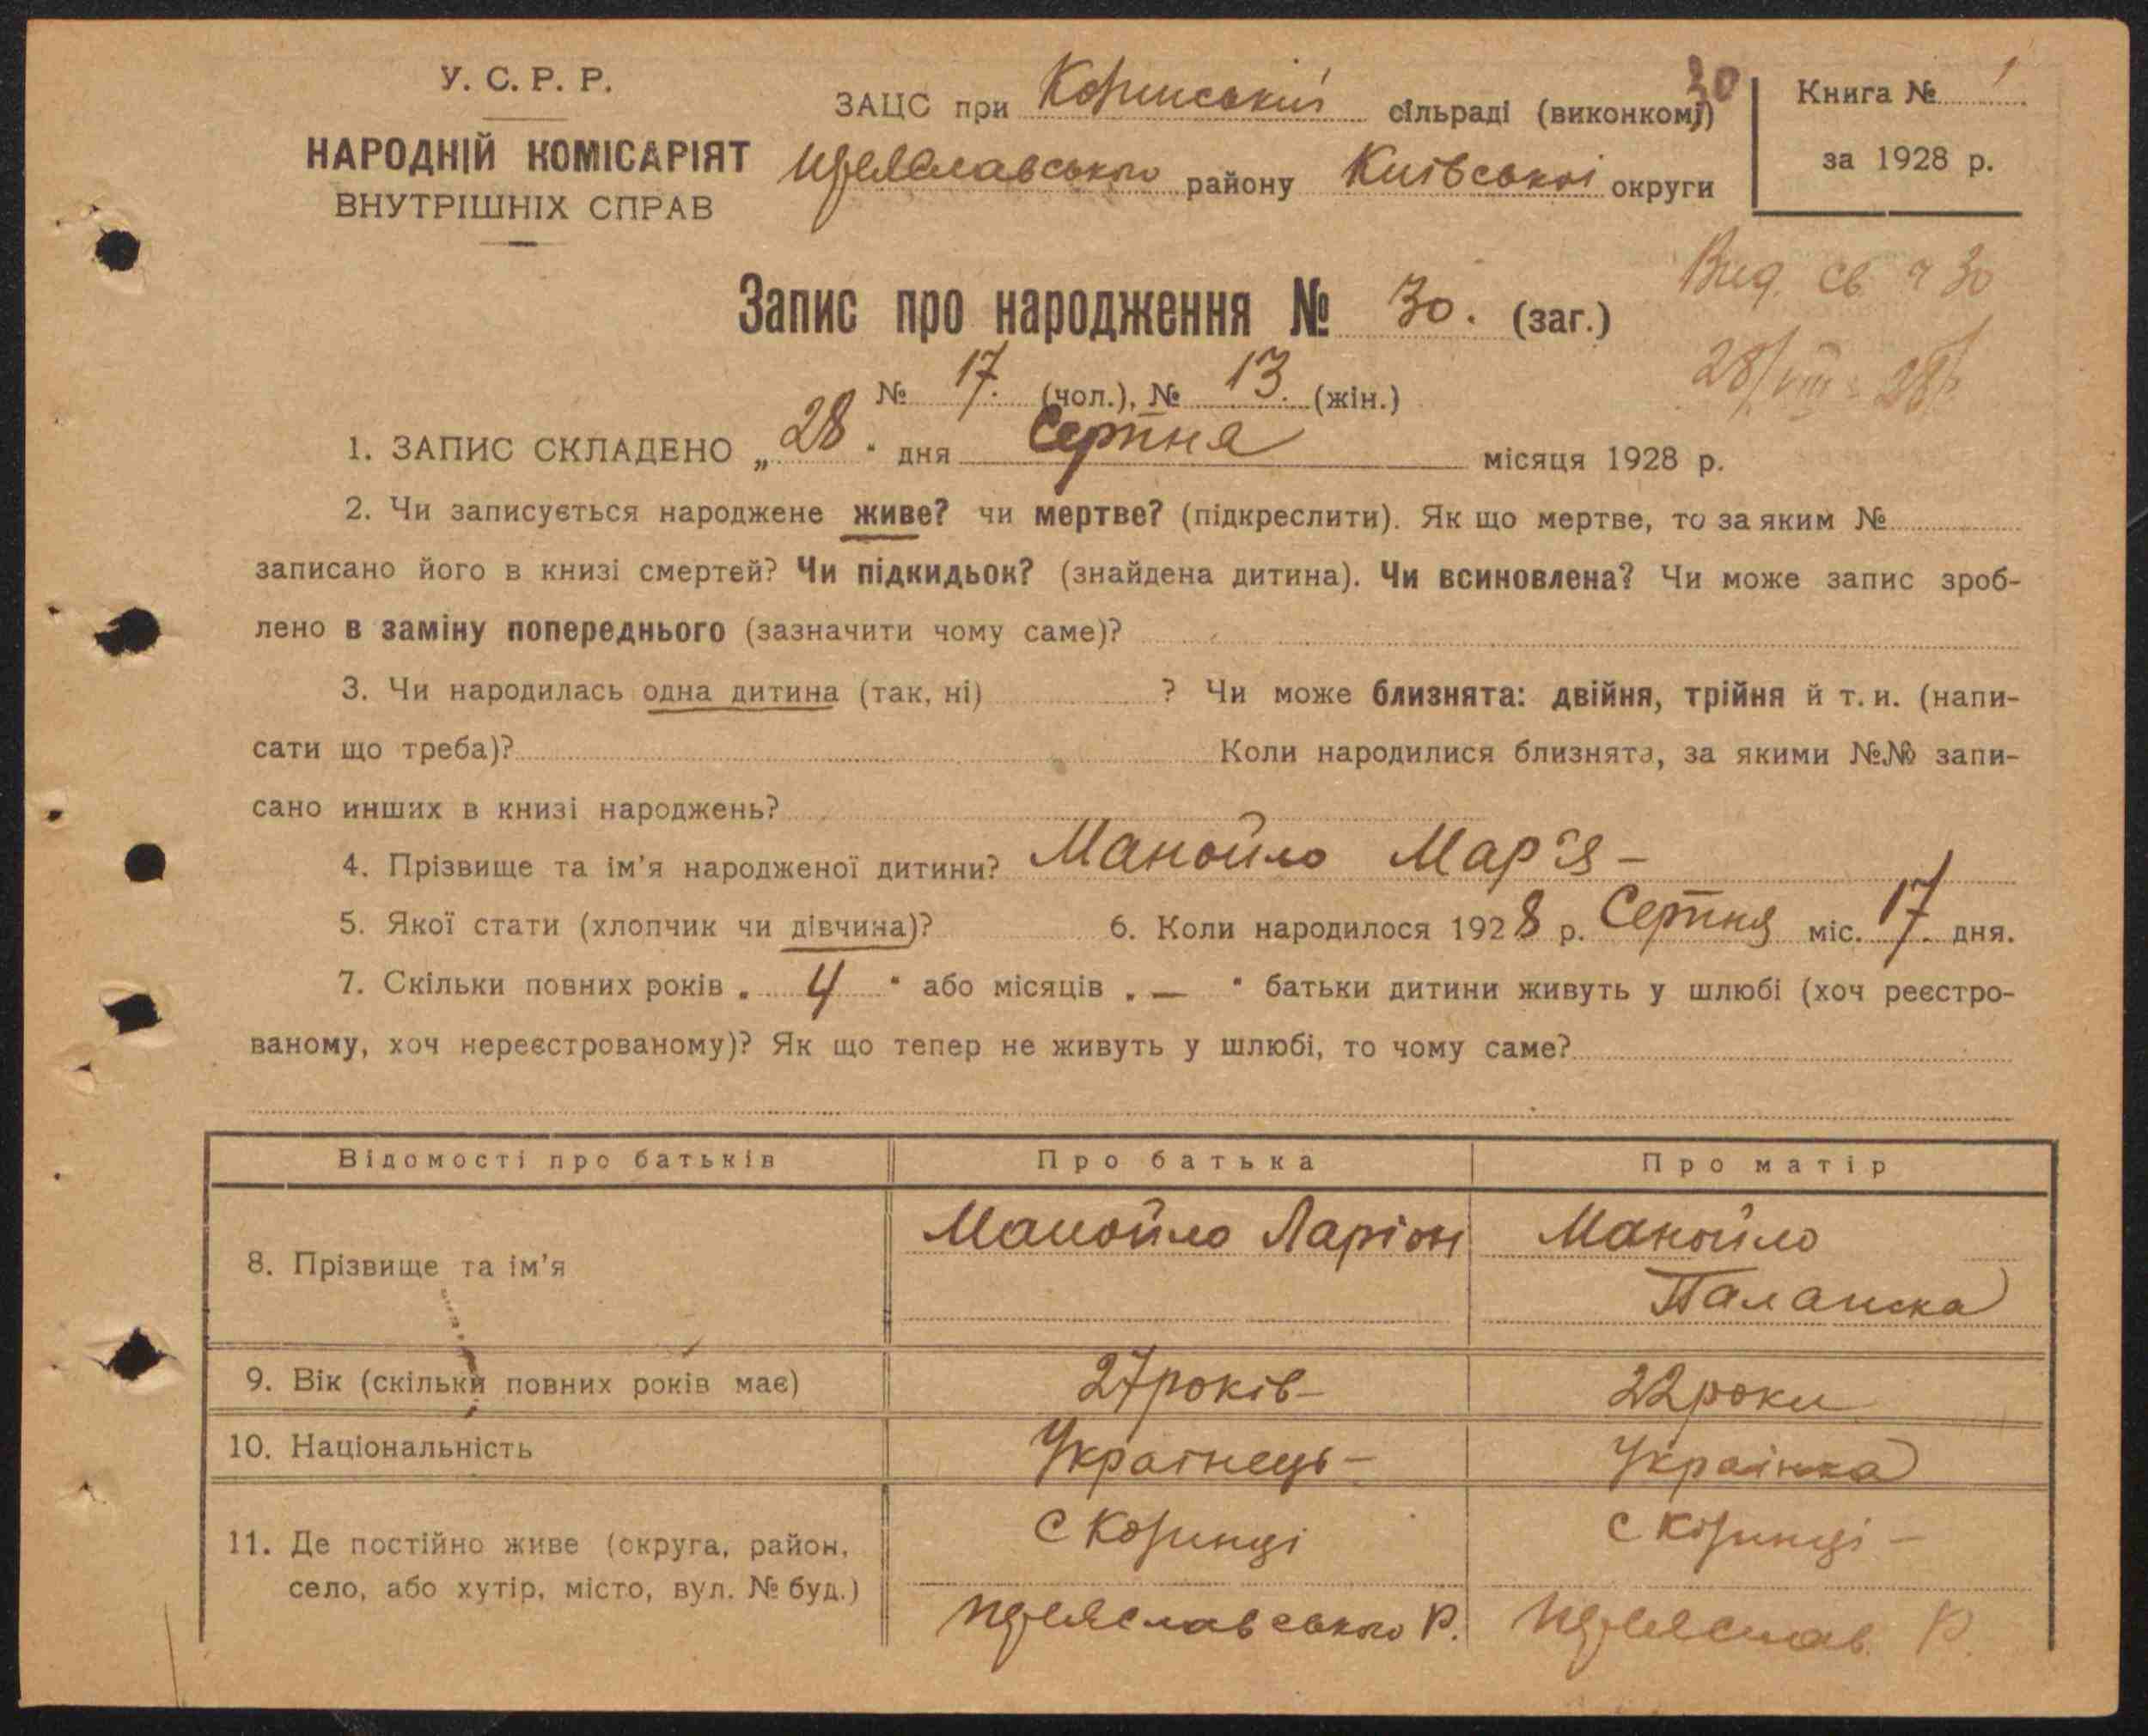 У. С. Р. Р.
НАРОДНІЙ КОМІСАРІЯТ
ВНУТРІШНІХ СПРАВ
30
ЗАЦС при Коринській сільраді (виконкомі)
Переяславського району Київської округи
Книга № 1
за 1928 р.
Вид. св. ч 30
28/VIII - 28 р.
Запис про народження № 30. (заг.)
№ 17. (чол.), № 13. (жін.)
1. ЗАПИС СКЛАДЕНО „28" дня Серпня місяця 1928 р.
2. Чи записується народжене живе? чи мертве? (підкреслити). Як що мертве, то за яким №
записано його в книзі смертей? Чи підкидьок? (знайдена дитина). Чи всиновлена? Чи може запис зроб-
лено в заміну попереднього (зазначити чому саме)?
3. Чи народилась одна дитина (так, ні) ? Чи може близнята: двійня, трійня й т. и. (напи-
сати що треба)? Коли народилися близнята, за якими №№ запи-
сано инших в книзі народжень?
4. Прізвище та ім'я народженої дитини? Манойло Мар'я –
5. Якої стати (хлопчик чи дівчина)? 6. Коли народилося 1928 р. Серпня міс. 17. дня.
7. Скільки повних років „ 4 " або місяців „ — " батьки дитини живуть у шлюбі (хоч реєстро-
ваному, хоч нереєстрованому)? Як що тепер не живуть у шлюбі, то чому саме?
Відомості про батьків Про батька Про матір
8. Прізвище та ім'я Манойло Ларіон Манойло
Палажка
9. Вік (скільки повних років має) 27 років – 22 роки
10. Національність Українець – Українка
11. Де постійно живе (округа, район, с Коринці с Коринці –
село, або хутір, місто, вул. № буд.) Переяславського Р. Переяслав. Р.